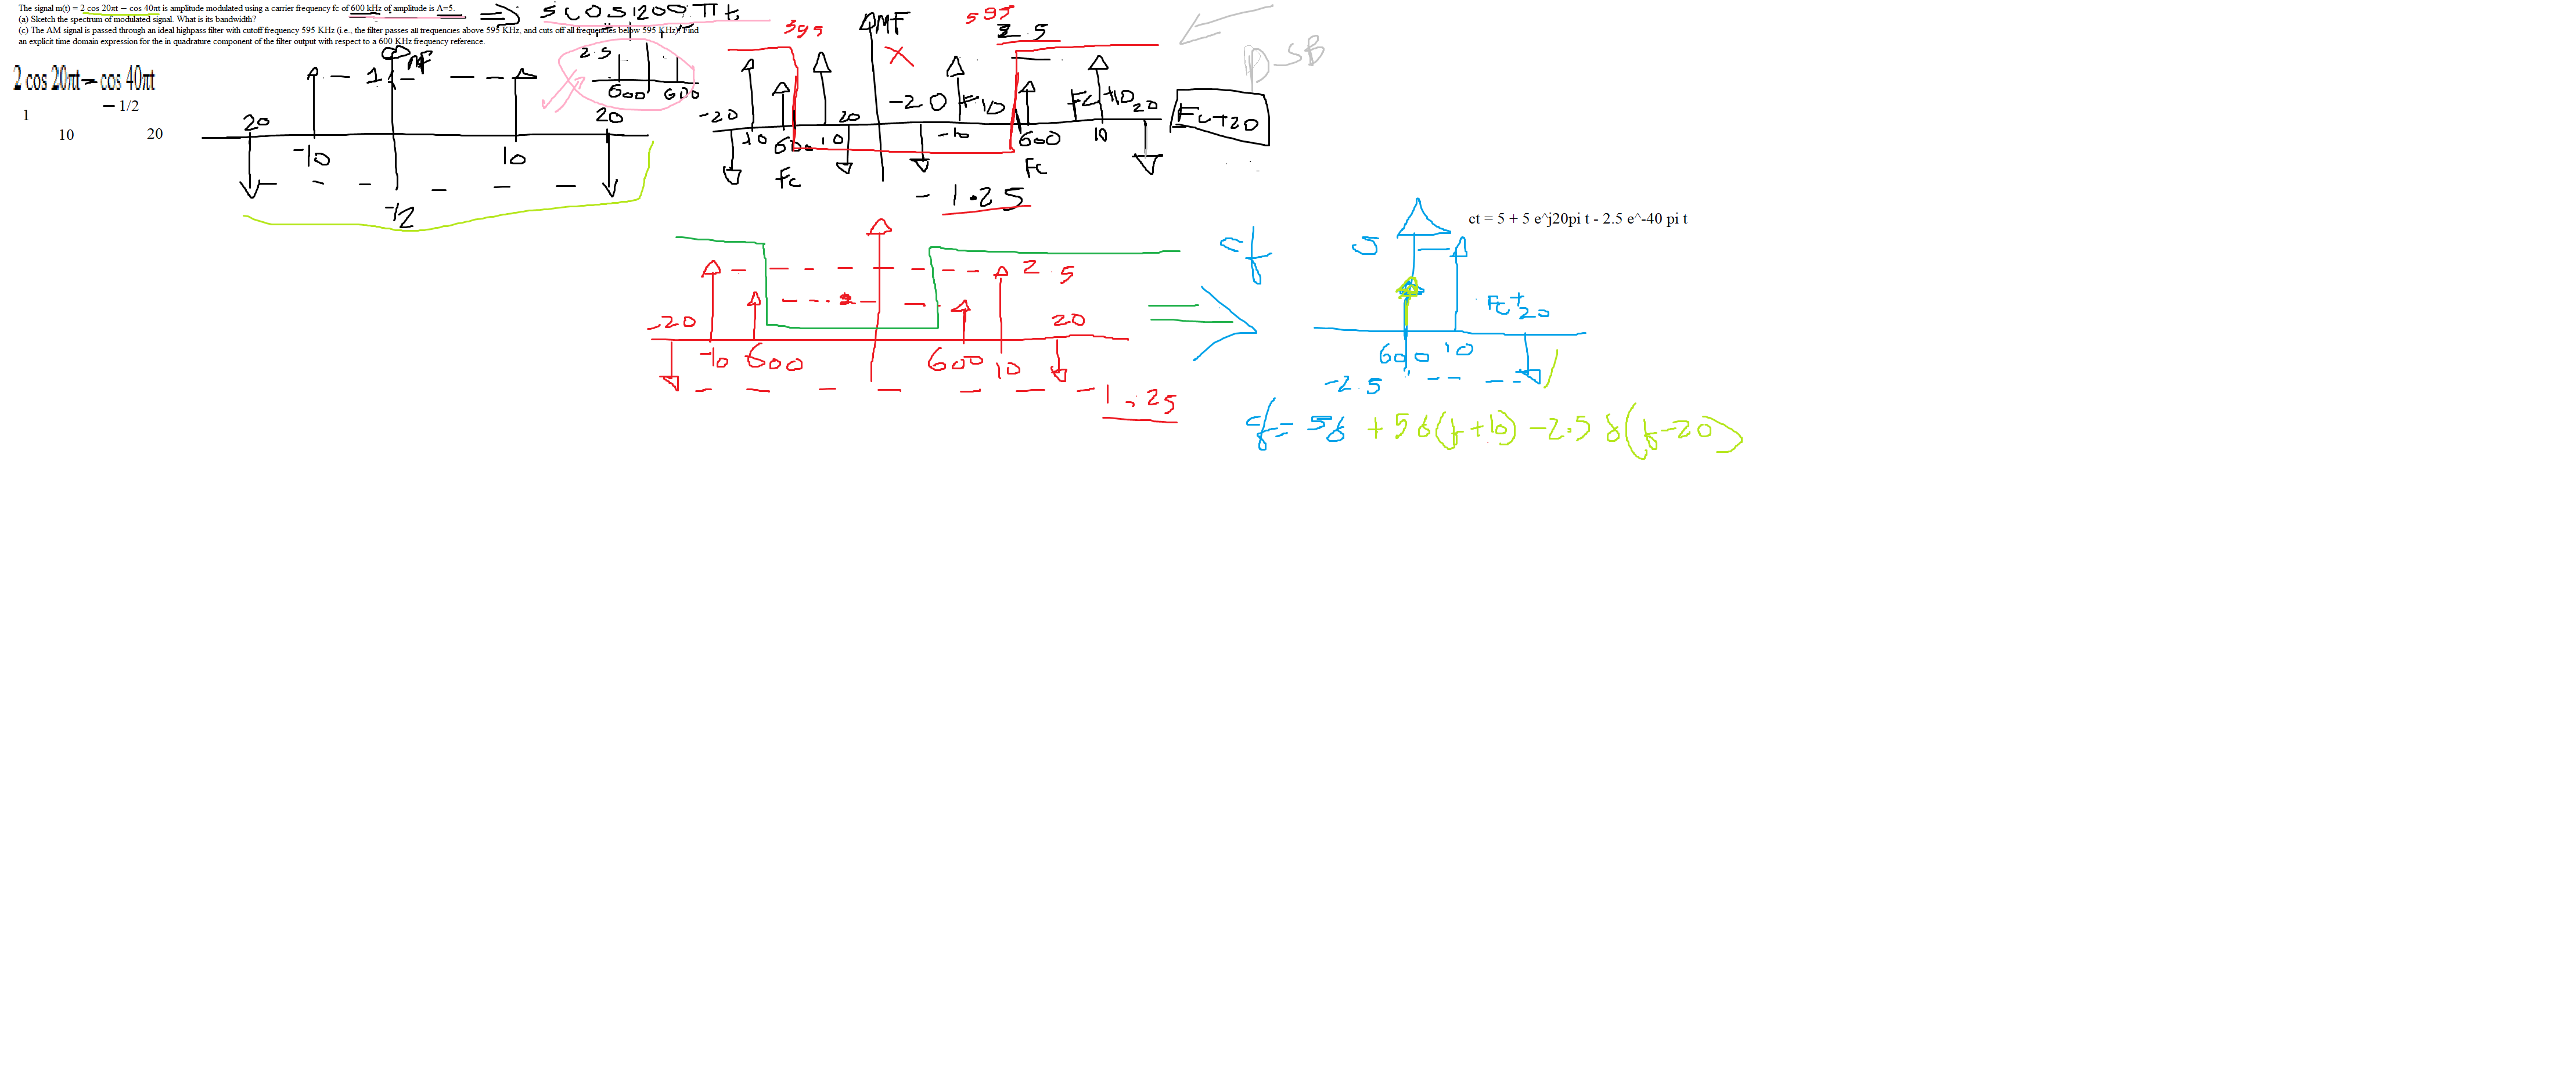 The signal m(t) = 2 cos 20πt − cos 40πt is amplitude modulated using a carrier frequency fc of 600 kHz of amplitude is A=5.
(a) Sketch the spectrum of modulated signal. What is its bandwidth?
(c) The AM signal is passed through an ideal highpass filter with cutoff frequency 595 KHz (i.e., the filter passes all frequencies above 595 KHz, and cuts off all frequencies below 595 KHz). Find
an explicit time domain expression for the in quadrature component of the filter output with respect to a 600 KHz frequency reference.
⇒ 5 cos 1200 π t
2 cos 20πt − cos 40πt
1 − 1/2
10 20
MF
1
20 -10 10 20
-1/2
2.5
600 600
595 UMF 595 2.5
-20 10 600 10 20
Fc
-20 F 10 -10 600 Fc+10 10 20
Fc
Fc+20
- 1.25
DSB
2.5
-20 -10 600 600 10 20
-1.25
cf
5
600 10 Fc+20
-2.5
ct = 5 + 5 e^j20pi t - 2.5 e^-40 pi t
cf = 5δ + 5δ(f+10) - 2.5 δ(f-20)